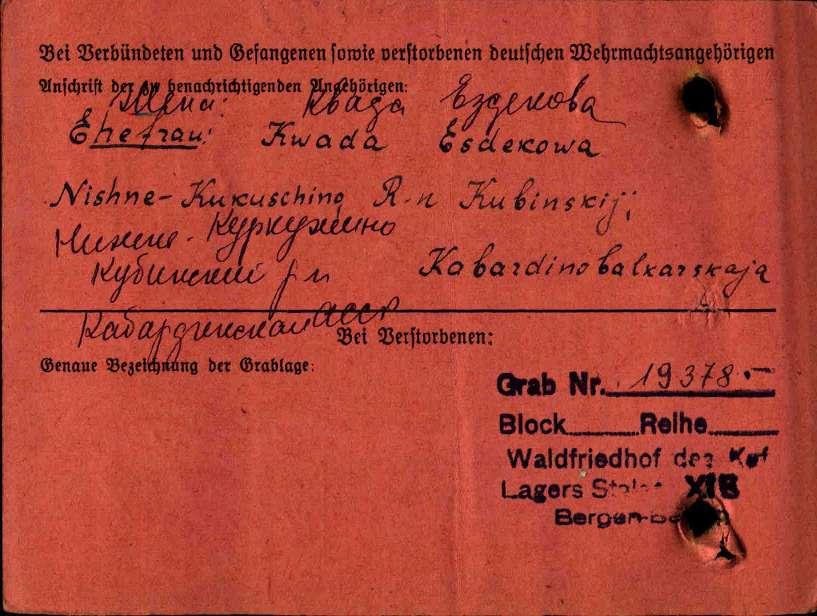 Bei Verbündeten und Gefangenen sowie verstorbenen deutschen Wehrmachtsangehörigen
Anschrift der zu benachrichtigenden Angehörigen:
Жена: Квада Ездекова
Ehefrau: Kwada Esdekowa
Nishne-Kukusching R-n Kubinskij,
Нижне-Куркужино
Кубинский р-н
Kabardinobalkarskaja
Кабардинская АССР
Bei Verstorbenen:
Genaue Bezeichnung der Grablage:
Grab Nr. 19378.-
Block Reihe
Waldfriedhof des Kgf
Lagers XIB
Bergen-